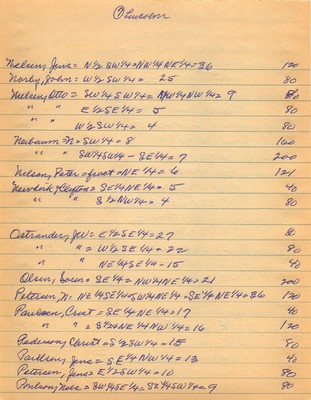 Lincoln
Nielsen, Jens = N½SW¼=NW¼NE¼=36 120
Norby, John = W½SW¼ = 25 80
Nielsen, Otto = SW¼SW¼= NW¼NW¼= 9 80
" " E½SE¼ = 5 80
" " W½SW¼ = 4 80
Neibaum = N = SW¼ = 8 160
" " SW¼SW¼ - SE¼ = 7 200
Nelson, Peter = fract = NE¼ = 6 121
Newkirk, Clayton = SE¼NE¼ = 5 40
" " S½NW¼ = 4 80
Ostrander, JW = E½SE¼ = 27 80
" " = W½SE¼ = 22 80
" " NE¼SE¼ - 15 40
Olsen, = SE¼ = NW¼NE¼ = 21 200
Petersen, N. NE¼SE¼=SW¼NE¼-SE¼NE¼=36 120
Paulsen, Crist = SE¼NE¼ = 17 40
" " = S½NE¼NW¼NE¼ = 16 120
Pedersen, Christ = S½SW¼ = 15 80
Paulsen, Jens = SE¼NW¼ = 13 40
Petersen, Jens = E½SW¼ = 10 80
Poulsen, Nels = SW¼SE¼=SE¼SW¼ = 9 80